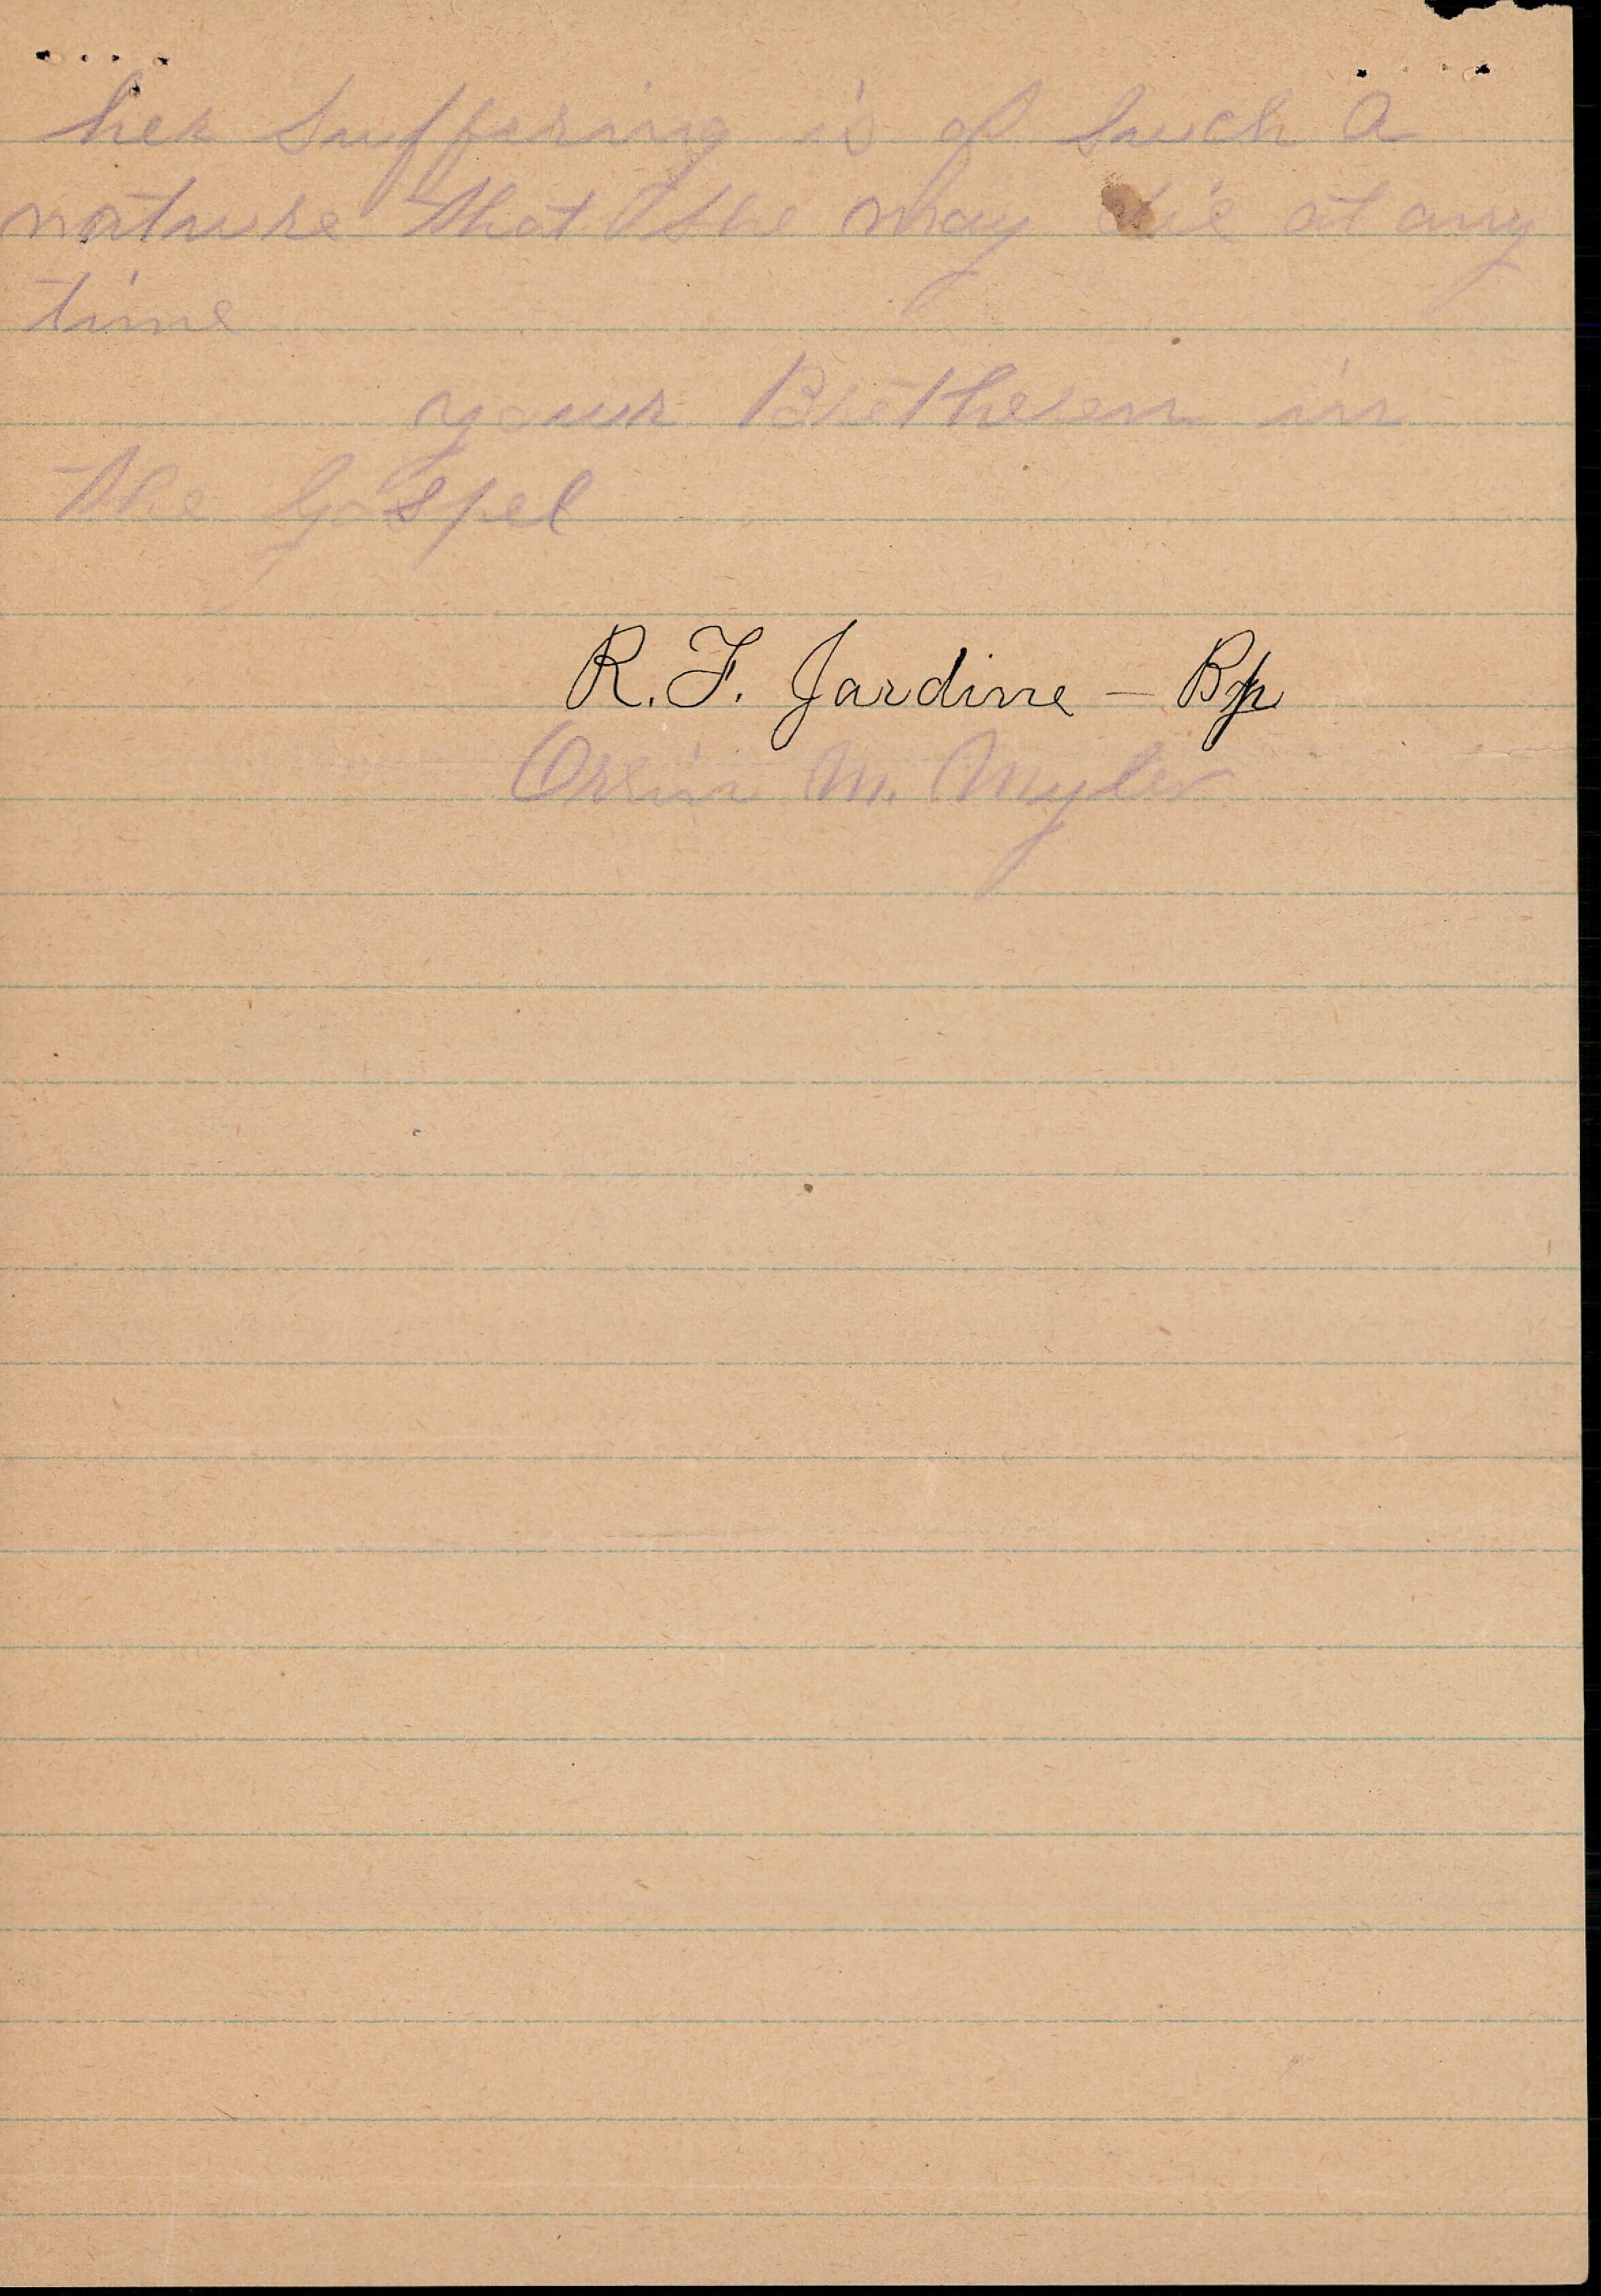 her suffering is of such a
nature that she may die at any
time
your Bretheren in
the Gospel
R. F. Jardine - Bp
Orrin M. Myler